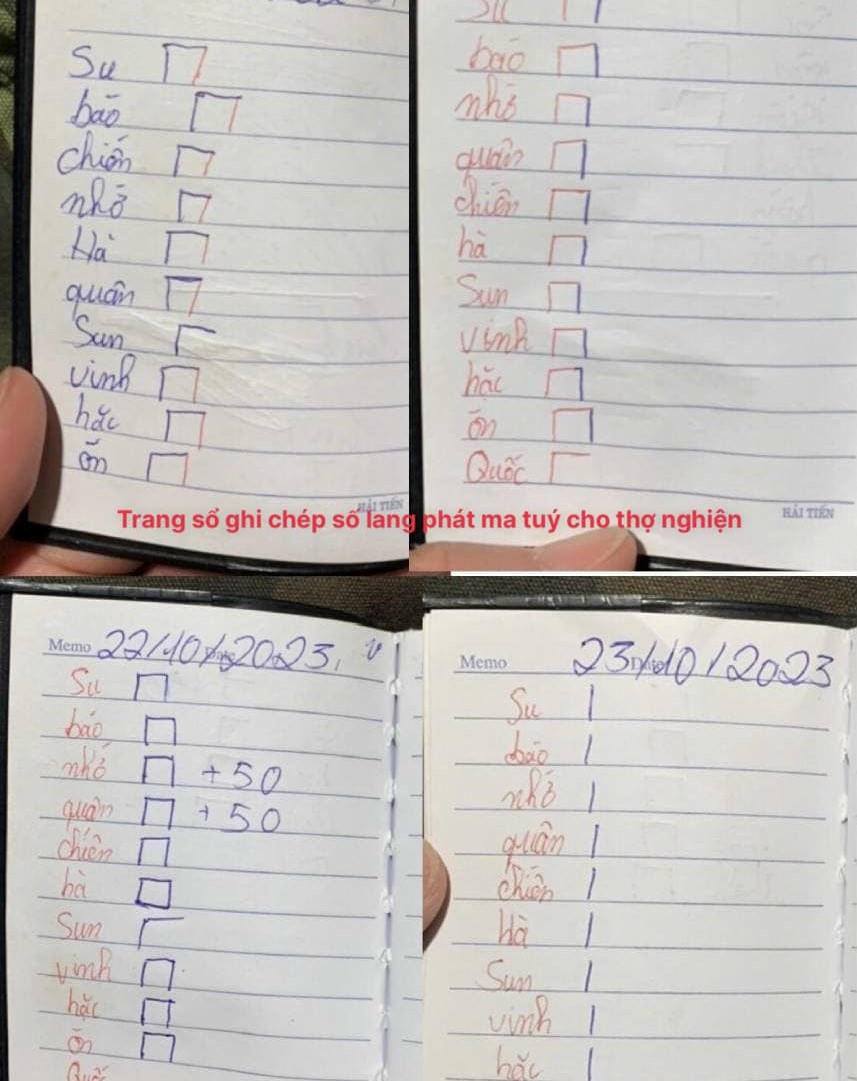 Su
bảo
chiến
nhỏ
Hà
quân
Sun
vinh
hắc
ổn
HẢI TIẾN
Su
bảo
nhỏ
quân
chiến
hà
Sun
Vinh
hắc
ổn
Quốc
HẢI TIẾN
Trang sổ ghi chép số lang phát ma tuý cho thợ nghiện
Memo Date 22/10/2023, v
Su
bảo
nhỏ +50
quân +50
chiến
hà
Sun
vinh
hắc
ổn
Quốc
Memo Date 23/10/2023
Su
bảo
nhỏ
quân
chiến
Hà
Sun
vinh
hắc